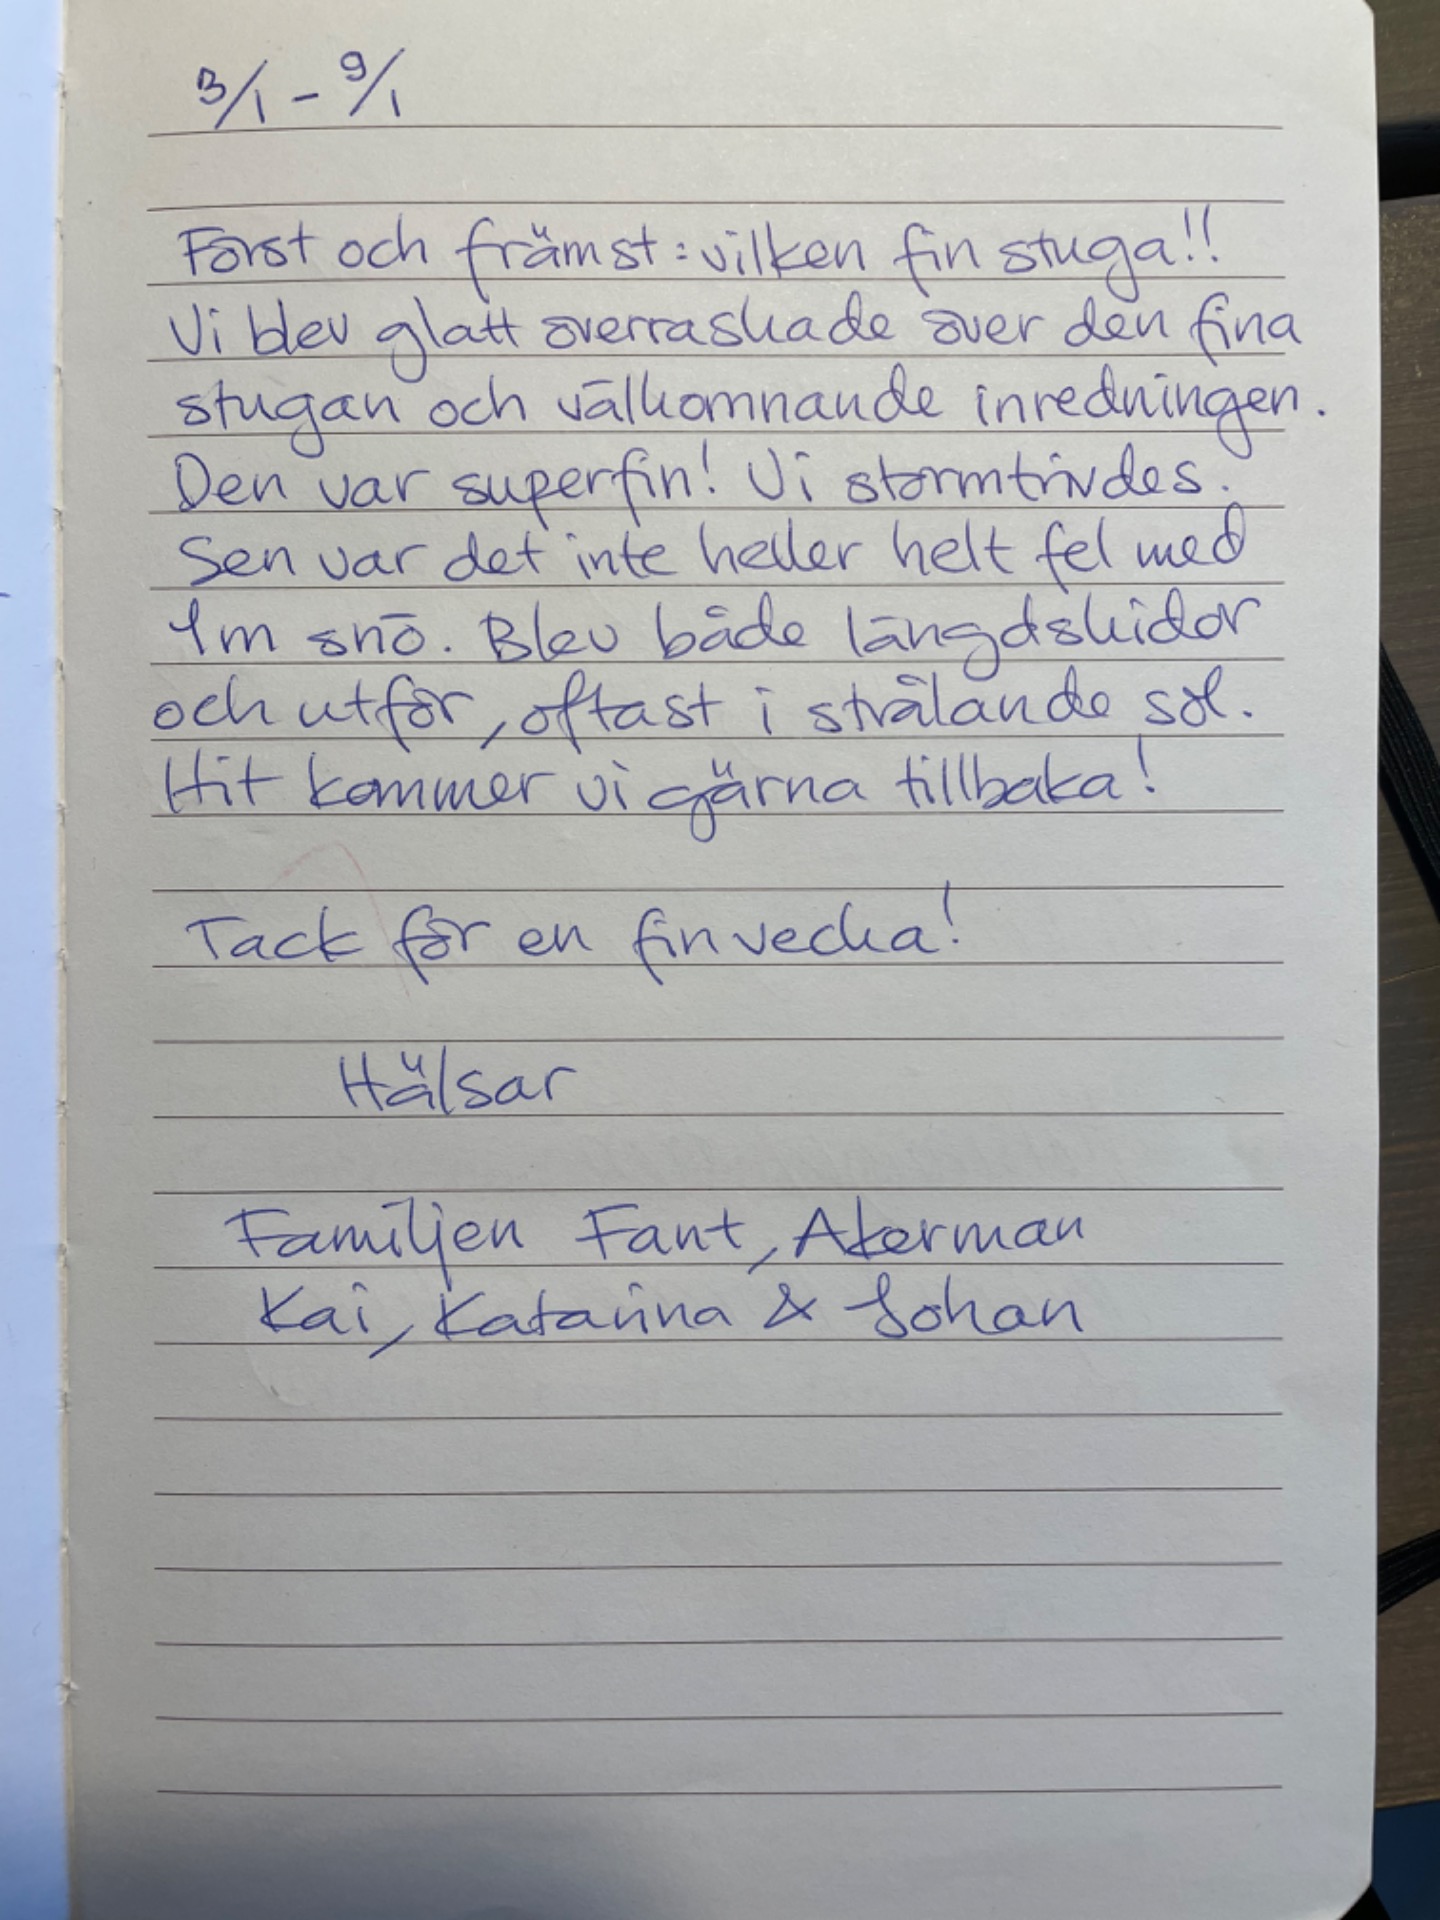 3/1 - 9/1
Först och främst: vilken fin stuga!!
Vi blev glatt överraskade över den fina
stugan och välkomnande inredningen.
Den var superfin! Vi stormtrivdes.
Sen var det inte heller helt fel med
1m snö. Blev både längdskidor
och utför, oftast i strålande sol.
Hit kommer vi gärna tillbaka!
Tack för en fin vecka!
Hälsar
Familjen Fant, Akerman
Kai, Katarina & Johan